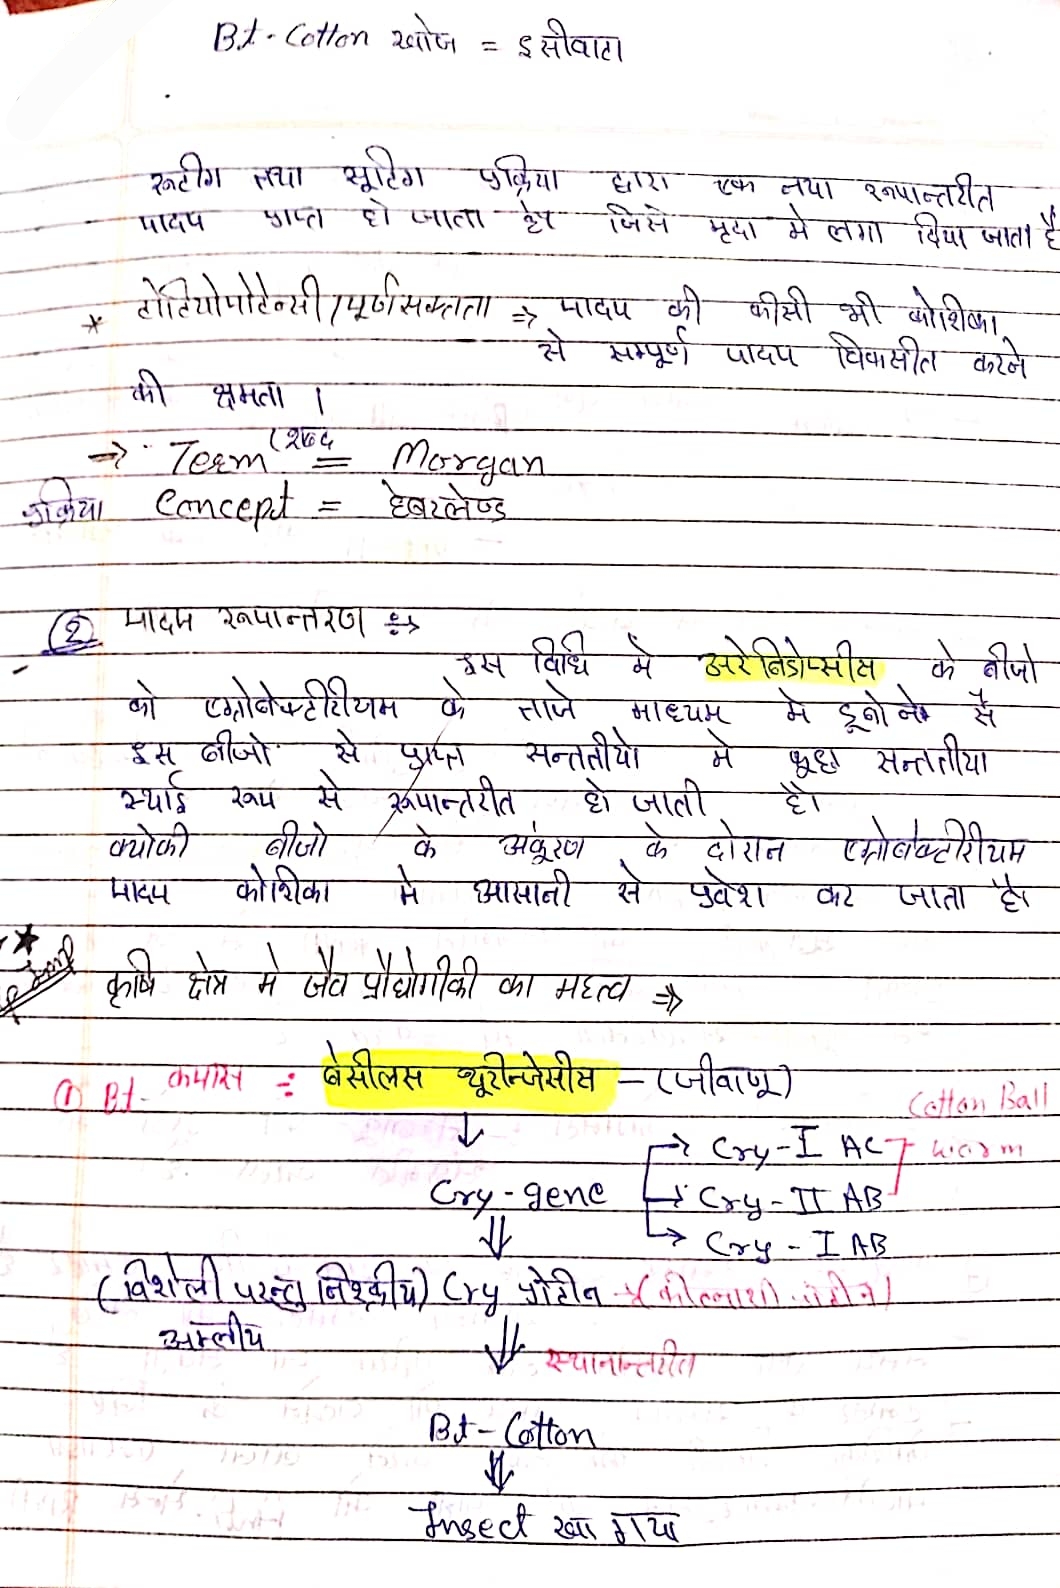 B.t - Cotton खोज = इसीवाटा
रूटींग तथा सूटिंग प्रक्रिया द्वारा एक नया रूपान्तरीत
पादप प्राप्त हो जाता है। जिसे मृदा मे लगा दिया जाता है
* टोटियोपोटेन्सी/पूर्णसक्तता ⇒ पादप की कीसी भी कोशिका
से सम्पूर्ण पादप विकसीत करने
की क्षमता ।
→ Term (शब्द = Morgan
प्रक्रिया Concept = हेबरलेण्ड
(2) पादप रूपान्तरण ÷→
इस विधि में अरेबिडोप्सीस के बीजो
को एग्रोबेक्टीरीयम के ताजे माध्यम मे डूबोने से
इस बीजो से प्राप्त सन्ततीयो मे कूछ सन्ततीया
स्थाई रूप से रूपान्तरीत हो जाती है।
क्योकी बीजो के अंकूरण के दोरान एग्रोबेक्टीरीयम
पादप कोशिका मे आसानी से प्रवेश कर जाता है।
★ कृषि क्षेत्र मे जैव प्रौद्योगीकी का महत्व ⇒
① Bt- कपास ÷ बेसीलस थूरीन्जेसीस – (जीवाणू)
Cotton Ball
↓
→ Cry - I AC
Cry - gene → Cry - II AB
⇓ → Cry - I AB
(विशेली परन्तु निश्क्रीय) Cry प्रोटीन → (कीटनाशी प्रोटीन)
अम्लीय
⇓ स्थानान्तरीत
Bt - Cotton
⇓
Insect खा गया